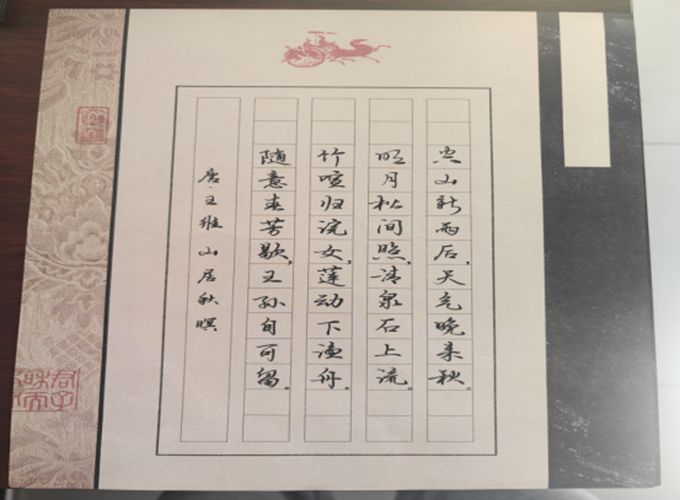 空山新雨后,天气晚来秋。
明月松间照,清泉石上流。
竹喧归浣女,莲动下渔舟。
随意春芳歇,王孙自可留。
唐·王维 山居秋暝